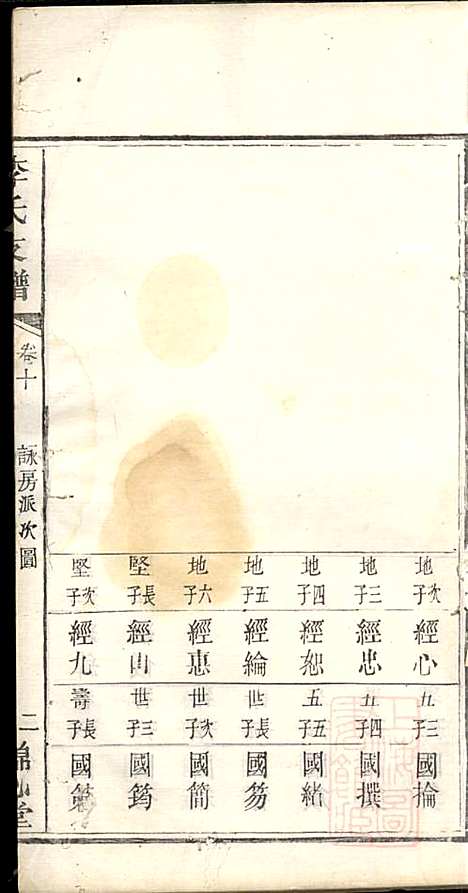 地次子 經心 九三子 國掄
地三子 經忠 五四子 國撰
地四子 經恕 五五子 國緒
地五子 經綸 世長子 國笏
地六子 經惠 世次子 國簡
堅長子 經山 世三子 國筠
堅次子 經九 壽長子
李氏支譜
卷十
詠房派次圖
二